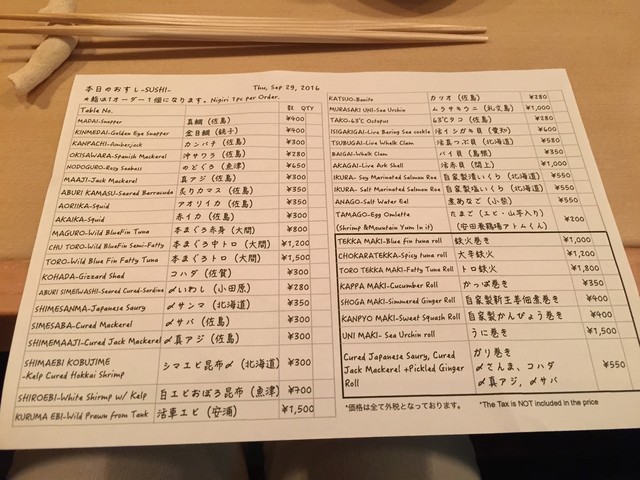 本日のおすし-SUSHI- Thu, Sep 29, 2016
*鮨は1オーダー1個になります。Nigiri 1pc per Order.
Table No. 数 QTY
MADAI-Snapper 真鯛 (佐島) ¥400
KINMEDAI-Golden Eye Snapper 金目鯛 (銚子) ¥400
KANPACHI-Amberjack カンパチ (佐島) ¥300
OKISAWARA-Spanish Mackerel 沖サワラ (佐島) ¥280
NODOGURO-Rosy Seabass のどくろ (魚津) ¥650
MAAJI-Jack Mackerel 真アジ (佐島) ¥300
ABURI KAMASU-Seared Barracuda 炙りカマス (佐島) ¥350
AORIIKA-Squid アオリイカ (佐島) ¥350
AKAIKA-Squid 赤イカ (佐島) ¥300
MAGURO-Wild Bluefin Tuna 本まぐろ赤身 (大間) ¥800
CHU TORO-Wild Bluefin Semi-Fatty 本まぐろ中トロ (大間) ¥1,200
TORO-Wild Blue Fin Fatty Tuna 本まぐろトロ (大間) ¥1,500
KOHADA-Gizzard Shad コハダ (佐賀) ¥300
ABURI SIMEIWASHI-Seared Cured-Sardine 〆いわし (小田原) ¥280
SHIMESANMA-Japanese Saury 〆サンマ (北海道) ¥350
SIMESABA-Cured Mackerel 〆サバ (佐島) ¥300
SHIMEMAAJI-Cured Jack Mackerel 〆真アジ (佐島) ¥300
SHIMAEBI KOBUJIME
-Kelp Cured Hokkai Shrimp シマエビ昆布〆 (北海道) ¥300
SHIROEBI-White Shirmp w/ Kelp 白エビおぼろ昆布 (魚津) ¥700
KURUMA EBI-Wild Prawn from Tank 活車エビ (安浦) ¥1,500
KATSUO-Bonito カツオ (佐島) ¥280
MURASAKI UNI-Sea Urchin ムラサキウニ (礼文島) ¥1,000
TAKO-63℃ Octopus 63℃タコ (佐島) ¥280
ISIGARIGAI-Live Bering Sea cockle 活イシガキ貝 (愛知) ¥600
TSUBUGAI-Live Whelk Clam 活真つぶ貝 (北海道) ¥580
BAIGAI-Whalk Clam バイ貝 (島根) ¥350
AKAGAI-Live Ark Shell 活赤貝 (閖上) ¥1,000
IKURA- Soy Marinated Salmon Roe 自家製漬いくら (北海道) ¥550
IKURA- Salt Marinated Salmon Roe 自家製塩いくら (北海道) ¥550
ANAGO-Salt Water Eel 煮あなご (小柴) ¥550
TAMAGO-Egg Omlette
(Shrimp &Mountain Yum In it) たまご (エビ・山芋入り)
(安田養鶏場アトムくん) ¥200
TEKKA MAKI-Blue fin tuna roll 鉄火巻き ¥1,000
CHOKARATEKKA-Spicy tuna roll 大辛鉄火 ¥1,200
TORO TEKKA MAKI-Fatty Tuna Roll トロ鉄火 ¥1,800
KAPPA MAKI-Cucumber Roll かっぱ巻き ¥350
SHOGA MAKI-Simmered Ginger Roll 自家製新生姜佃煮巻き ¥400
KANPYO MAKI-Sweet Squash Roll 自家製かんぴょう巻き ¥400
UNI MAKI- Sea Urchin roll うに巻き ¥1,500
Cured Japanese Saury, Cured
Jack Mackerel +Pickled Ginger
Roll ガリ巻き
〆さんま、コハダ
〆真アジ、〆サバ ¥550
*価格は全て外税となっております。 *The Tax is NOT included in the price